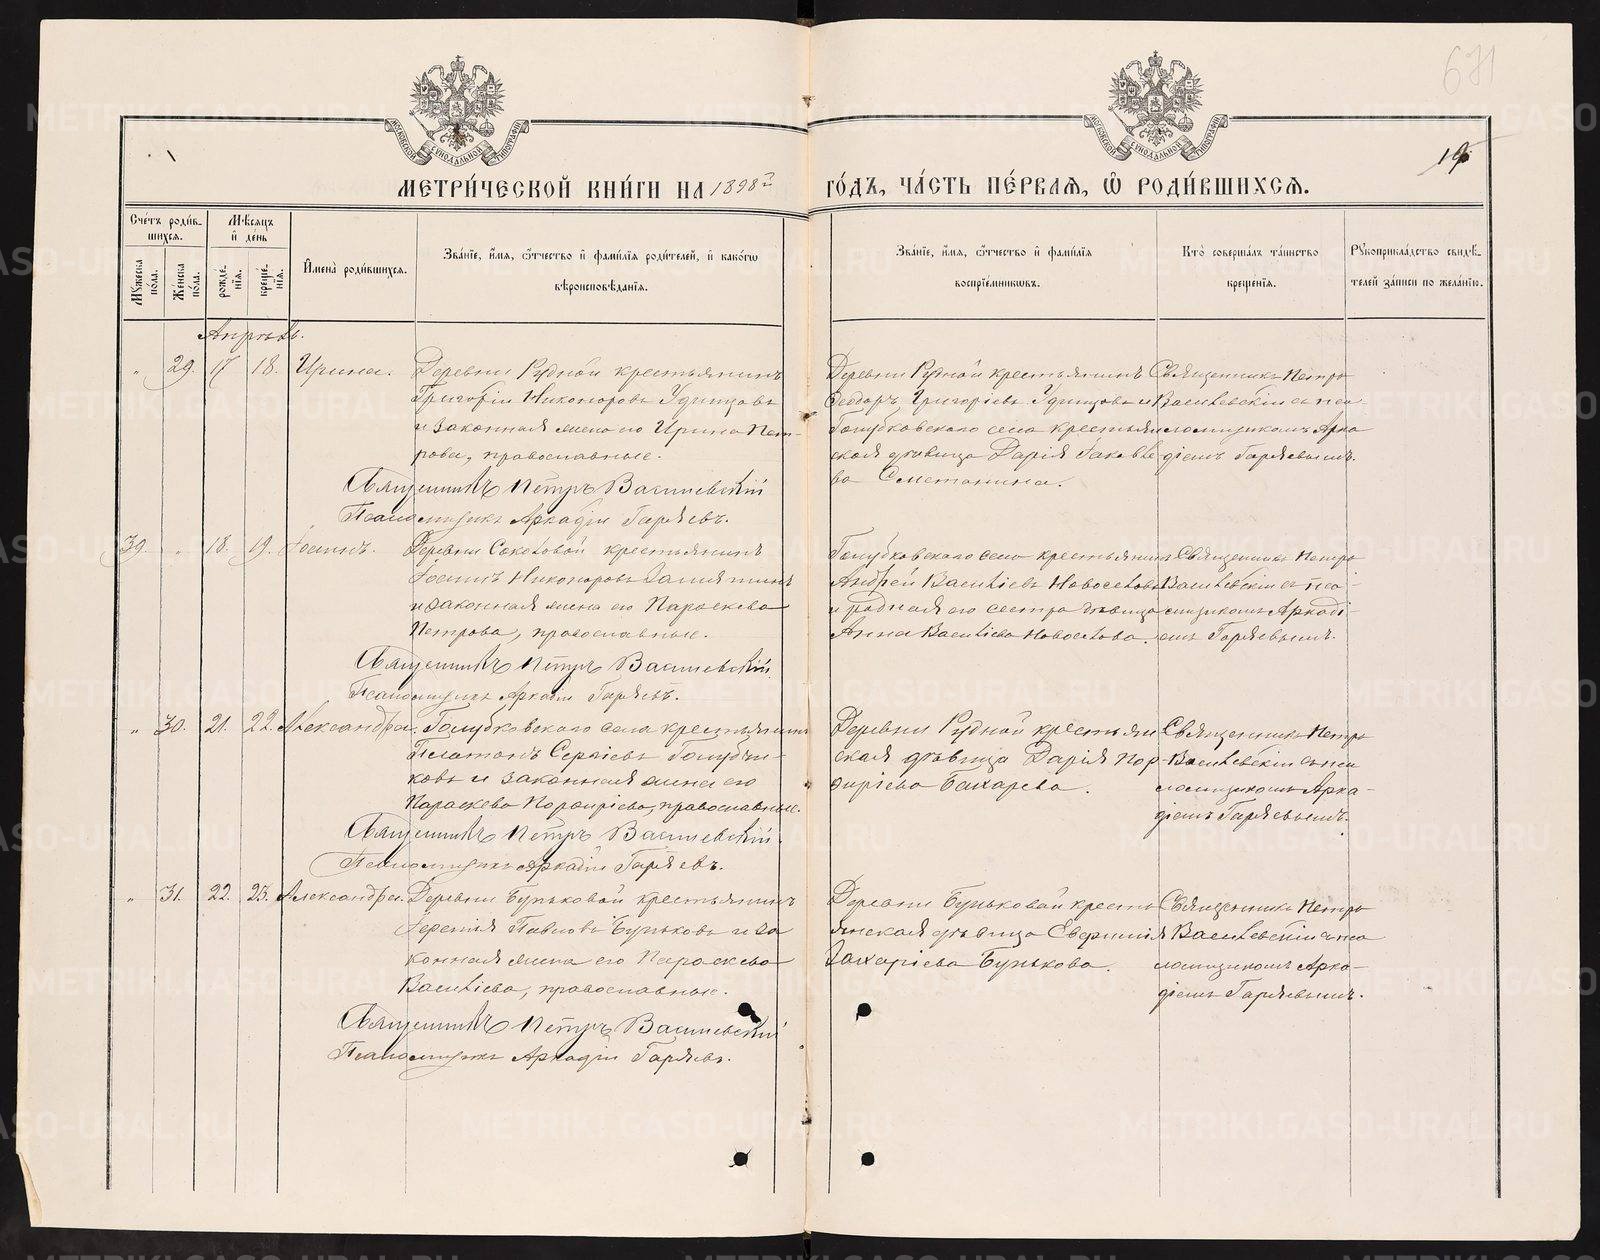 671
19
МЕТРИ́ЧЕСКОЙ КНИ́ГИ НА 1898 ГО́ДЪ, ЧА́СТЬ ПЕ́РВАЯ, Ѽ РОДИ́ВШИХСЯ.
Сче́тъ роди́вшихся.
Му́жеска по́ла.
Же́нска по́ла.
Мѣ́сяцъ и де́нь
рожде́нїя.
креще́нїя.
Имена̀ роди́вшихся.
Зва́нїе, и́мя, ѻ́тчество и фами́лїя роди́телей, и како́гѡ
вѣроисповѣ́данїя.
Зва́нїе, и́мя, ѻ́тчество и фами́лїя
воспрїе́мниковъ.
Кто̀ соверша́лъ та́инство
креще́нїя.
Рукоприкла́дство свидѣ́телей за́писи по жела́нїю.
Апрѣль.
" 29. 17 18. Ирина. Деревни Рудной крестьянинъ
Григорій Никоноровъ Удинцовъ
и законная жена его Ирина Пет-
рова, православные.
Священникъ Петръ Василевскій
Псаломщикъ Аркадій Гаряевъ.
Деревни Рудной крестьянинъ
Ѳеодоръ Григоріевъ Удинцовъ и
Голубковскаго села крестьян
ская дѣвица Дарія Іаковле
ва Сметанина.
Священникъ Петръ
Василевскій съ пса-
ломщикомъ Арка
діемъ Гаряевымъ.
39. " 18. 19. Іоаннъ. Деревни Соколовой крестьянинъ
Іоаннъ Никоноровъ Замятинъ
и законная жена его Параскева
Петрова, православные.
Священникъ Петръ Василевскій
Псаломщикъ Аркадій Гаряевъ.
Голубковскаго села крестьянинъ
Андрей Василіевъ Новоселовъ
и родная его сестра дѣвица
Анна Василіева Новоселова.
Священникъ Петръ
Василевскій съ пса-
ломщикомъ Аркаді-
емъ Гаряевымъ.
" 30. 21. 22. Александра. Голубковскаго села крестьянинъ
Платонъ Сергіевъ Голубчи-
ковъ и законная жена его
Параскева Порфиріева, православные.
Священникъ Петръ Василевскій.
Псаломщикъ Аркадій Гаряевъ.
Деревни Рудной крестьян
ская дѣвица Дарія Пор-
фиріева Бахарева.
Священникъ Петръ
Василевскій съ пса
ломщикомъ Арка-
діемъ Гаряевымъ.
" 31. 22. 23. Александра. Деревни Буньковой крестьянинъ
Іеремія Павловъ Буньковъ и за
конная жена его Параскева
Василіева, православные.
Священникъ Петръ Василевскій
Псаломщикъ Аркадій Гаряевъ.
Деревни Буньковой кресть
янская дѣвица Евфимія
Захаріева Бунькова.
Священникъ Петръ
Василевскій съ пса
ломщикомъ Арка-
діемъ Гаряевымъ.
METRIKI.GASO-URAL.RU